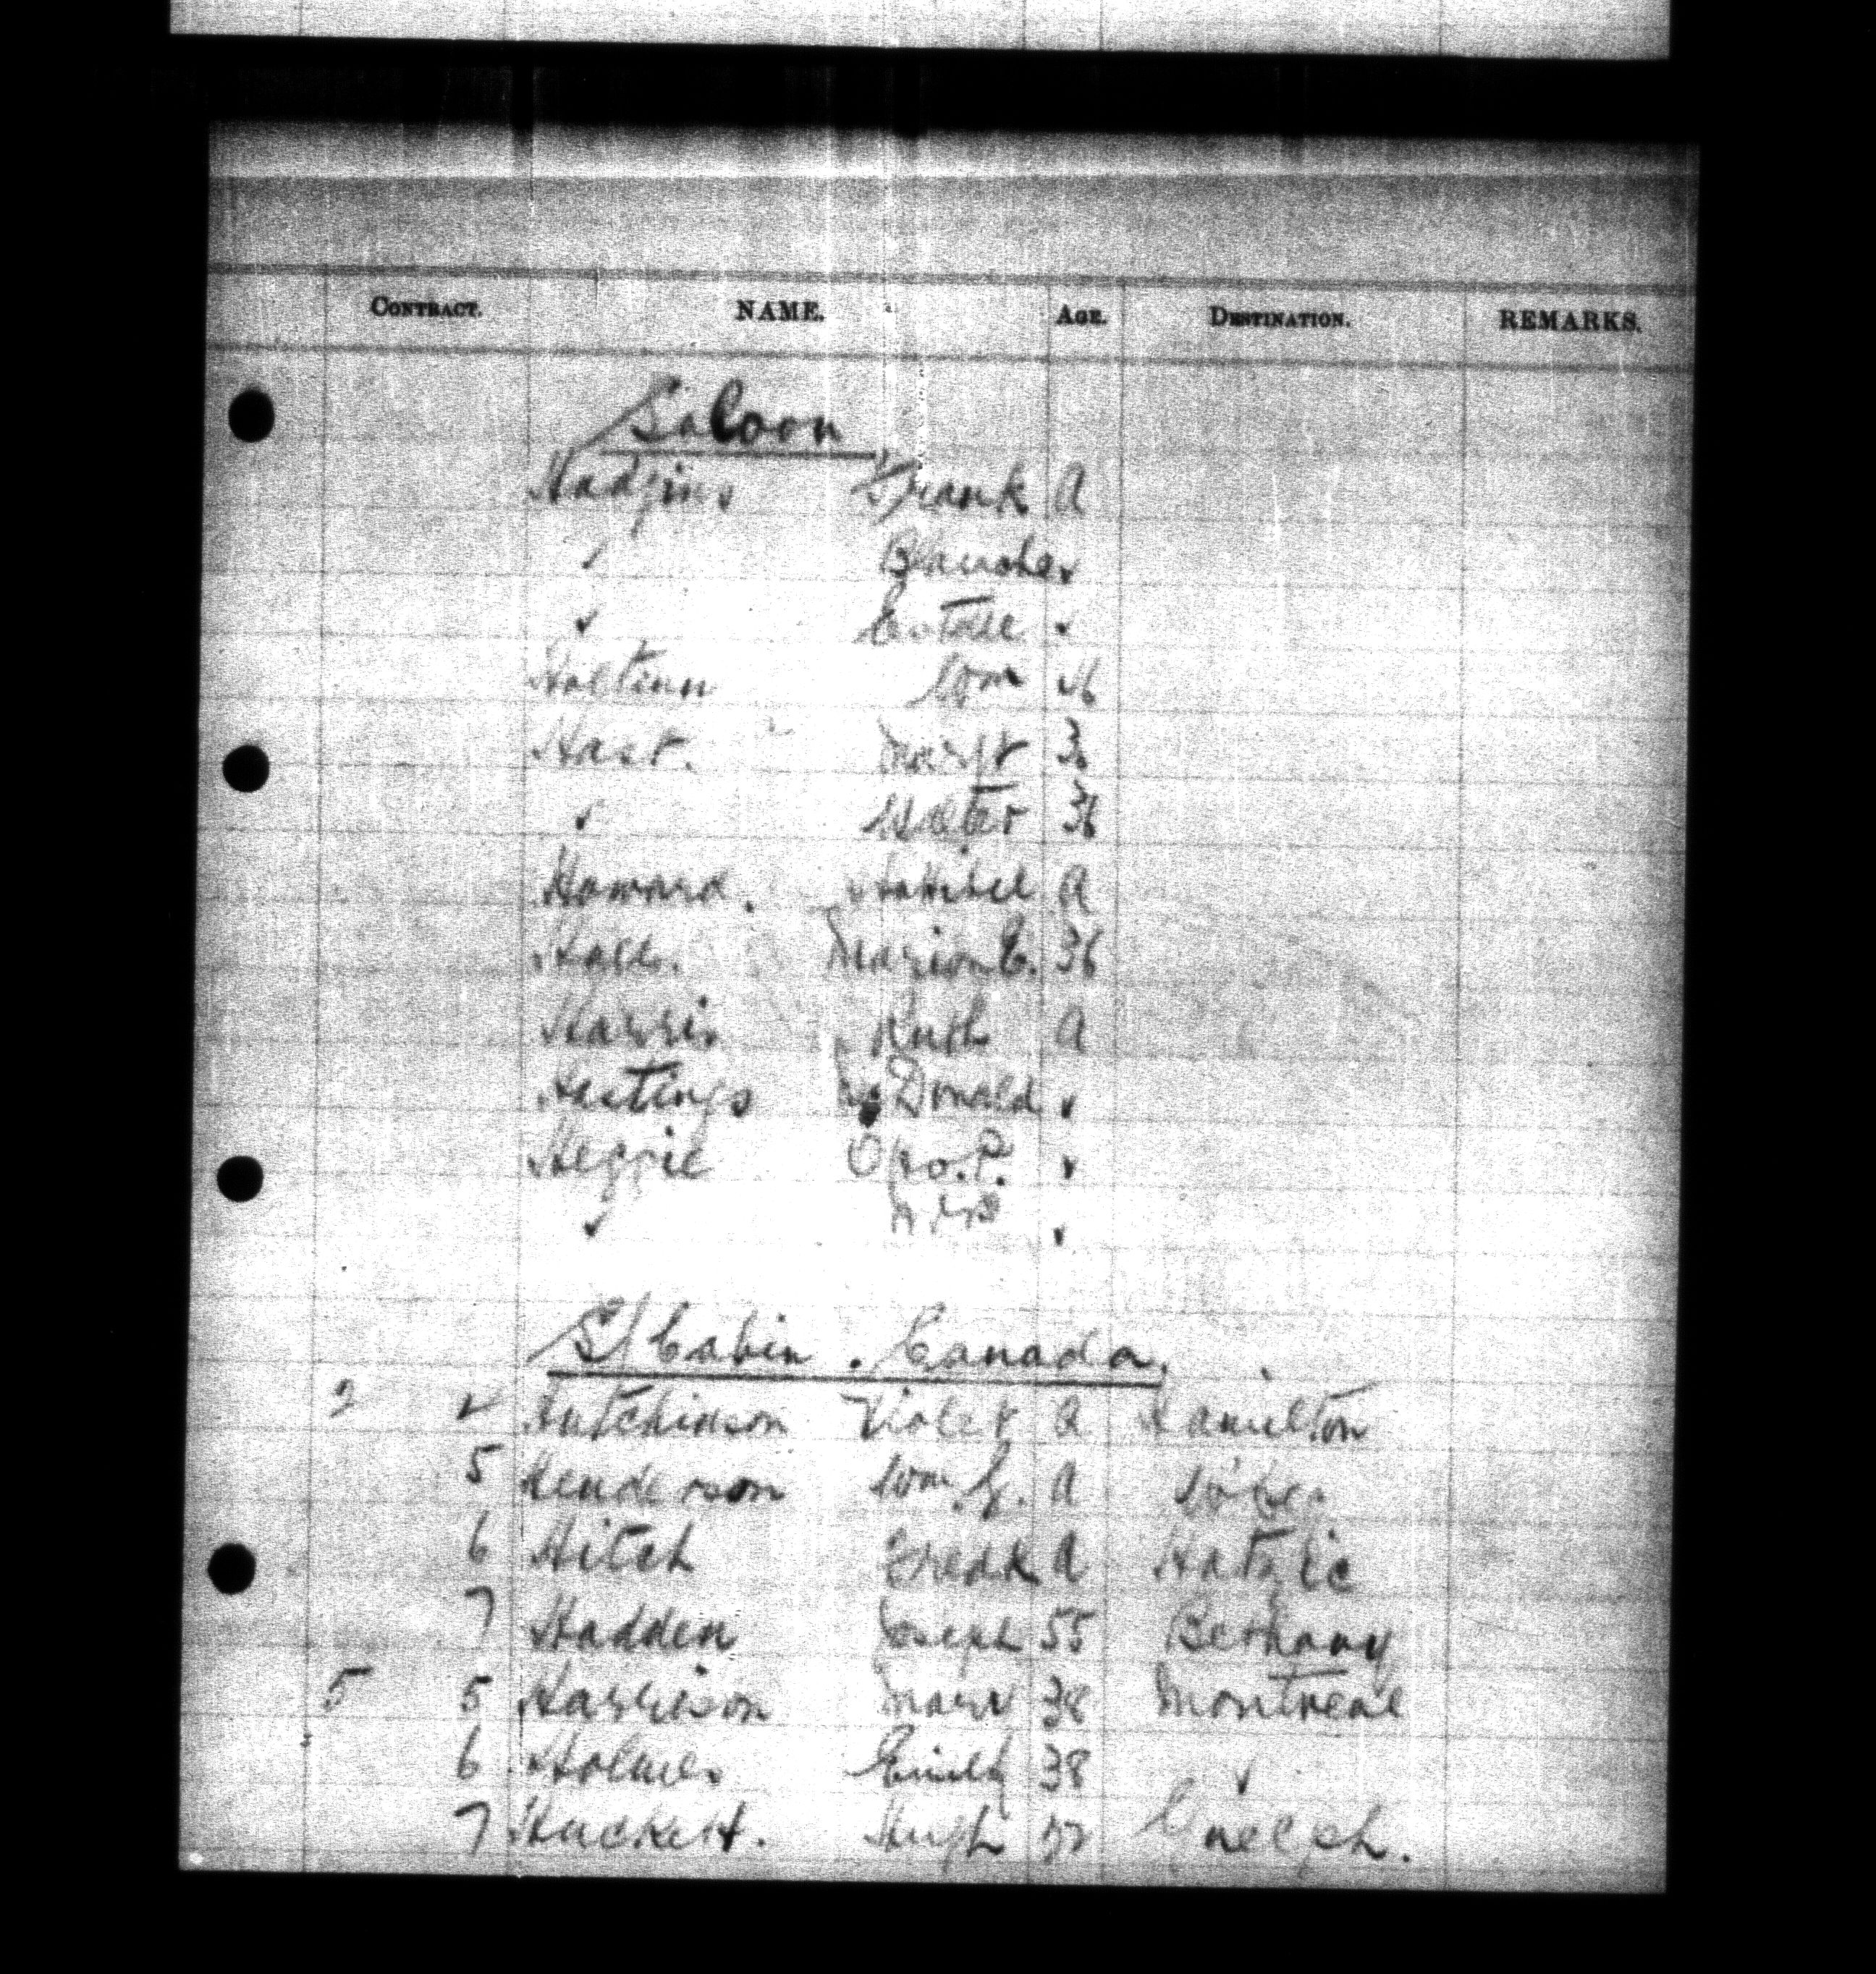 CONTRACT. NAME. AGE. DESTINATION. REMARKS.
Saloon
Hadgins Frank A
✓ Blanche ✓
✓ ✓
Wm
Hast. Margt
✓ Walter 36
Howard. A
Marion E. 36
Harris Ruth A
Hastings McDonald ✓
Heggie Geo. P. ✓
✓ Mrs ✓
S/Cabin. Canada.
2 ✓ Hutchinson Violet A Hamilton
5 Henderson Wm G. A
6 Hitch Fredk A Hatzic
7 Hadden Joseph 55 Bethany
5 5 Harrison Mary 38 Montreal
6 Holmes Emily 38 ✓
7 Huckett. Hugh Guelph.